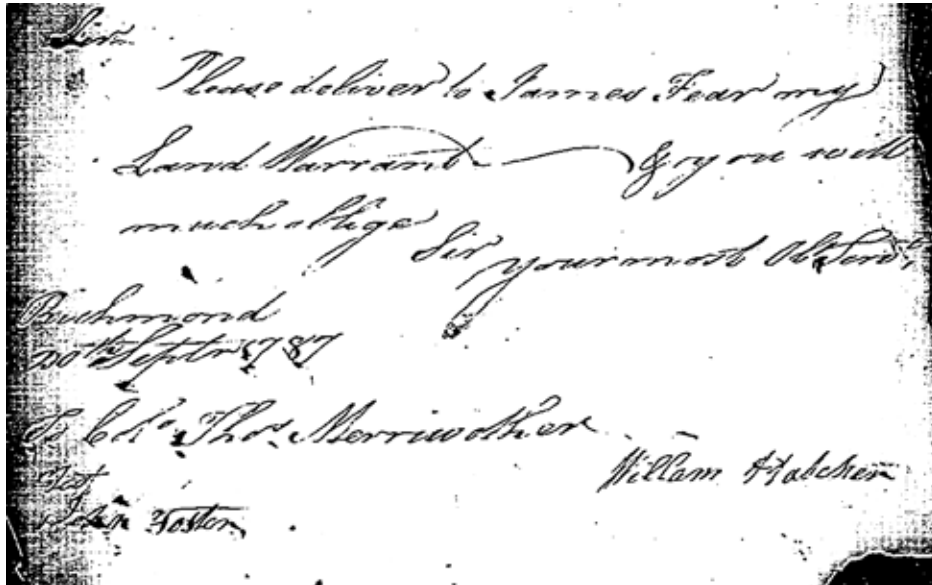 Sir
Please deliver to James Fear my
Land Warrant & you will
much oblige
Sir
your most Ob Servt
Richmond
20th Septr 1787
To Colo Thos Merriwether
Test
John Foster
Willam